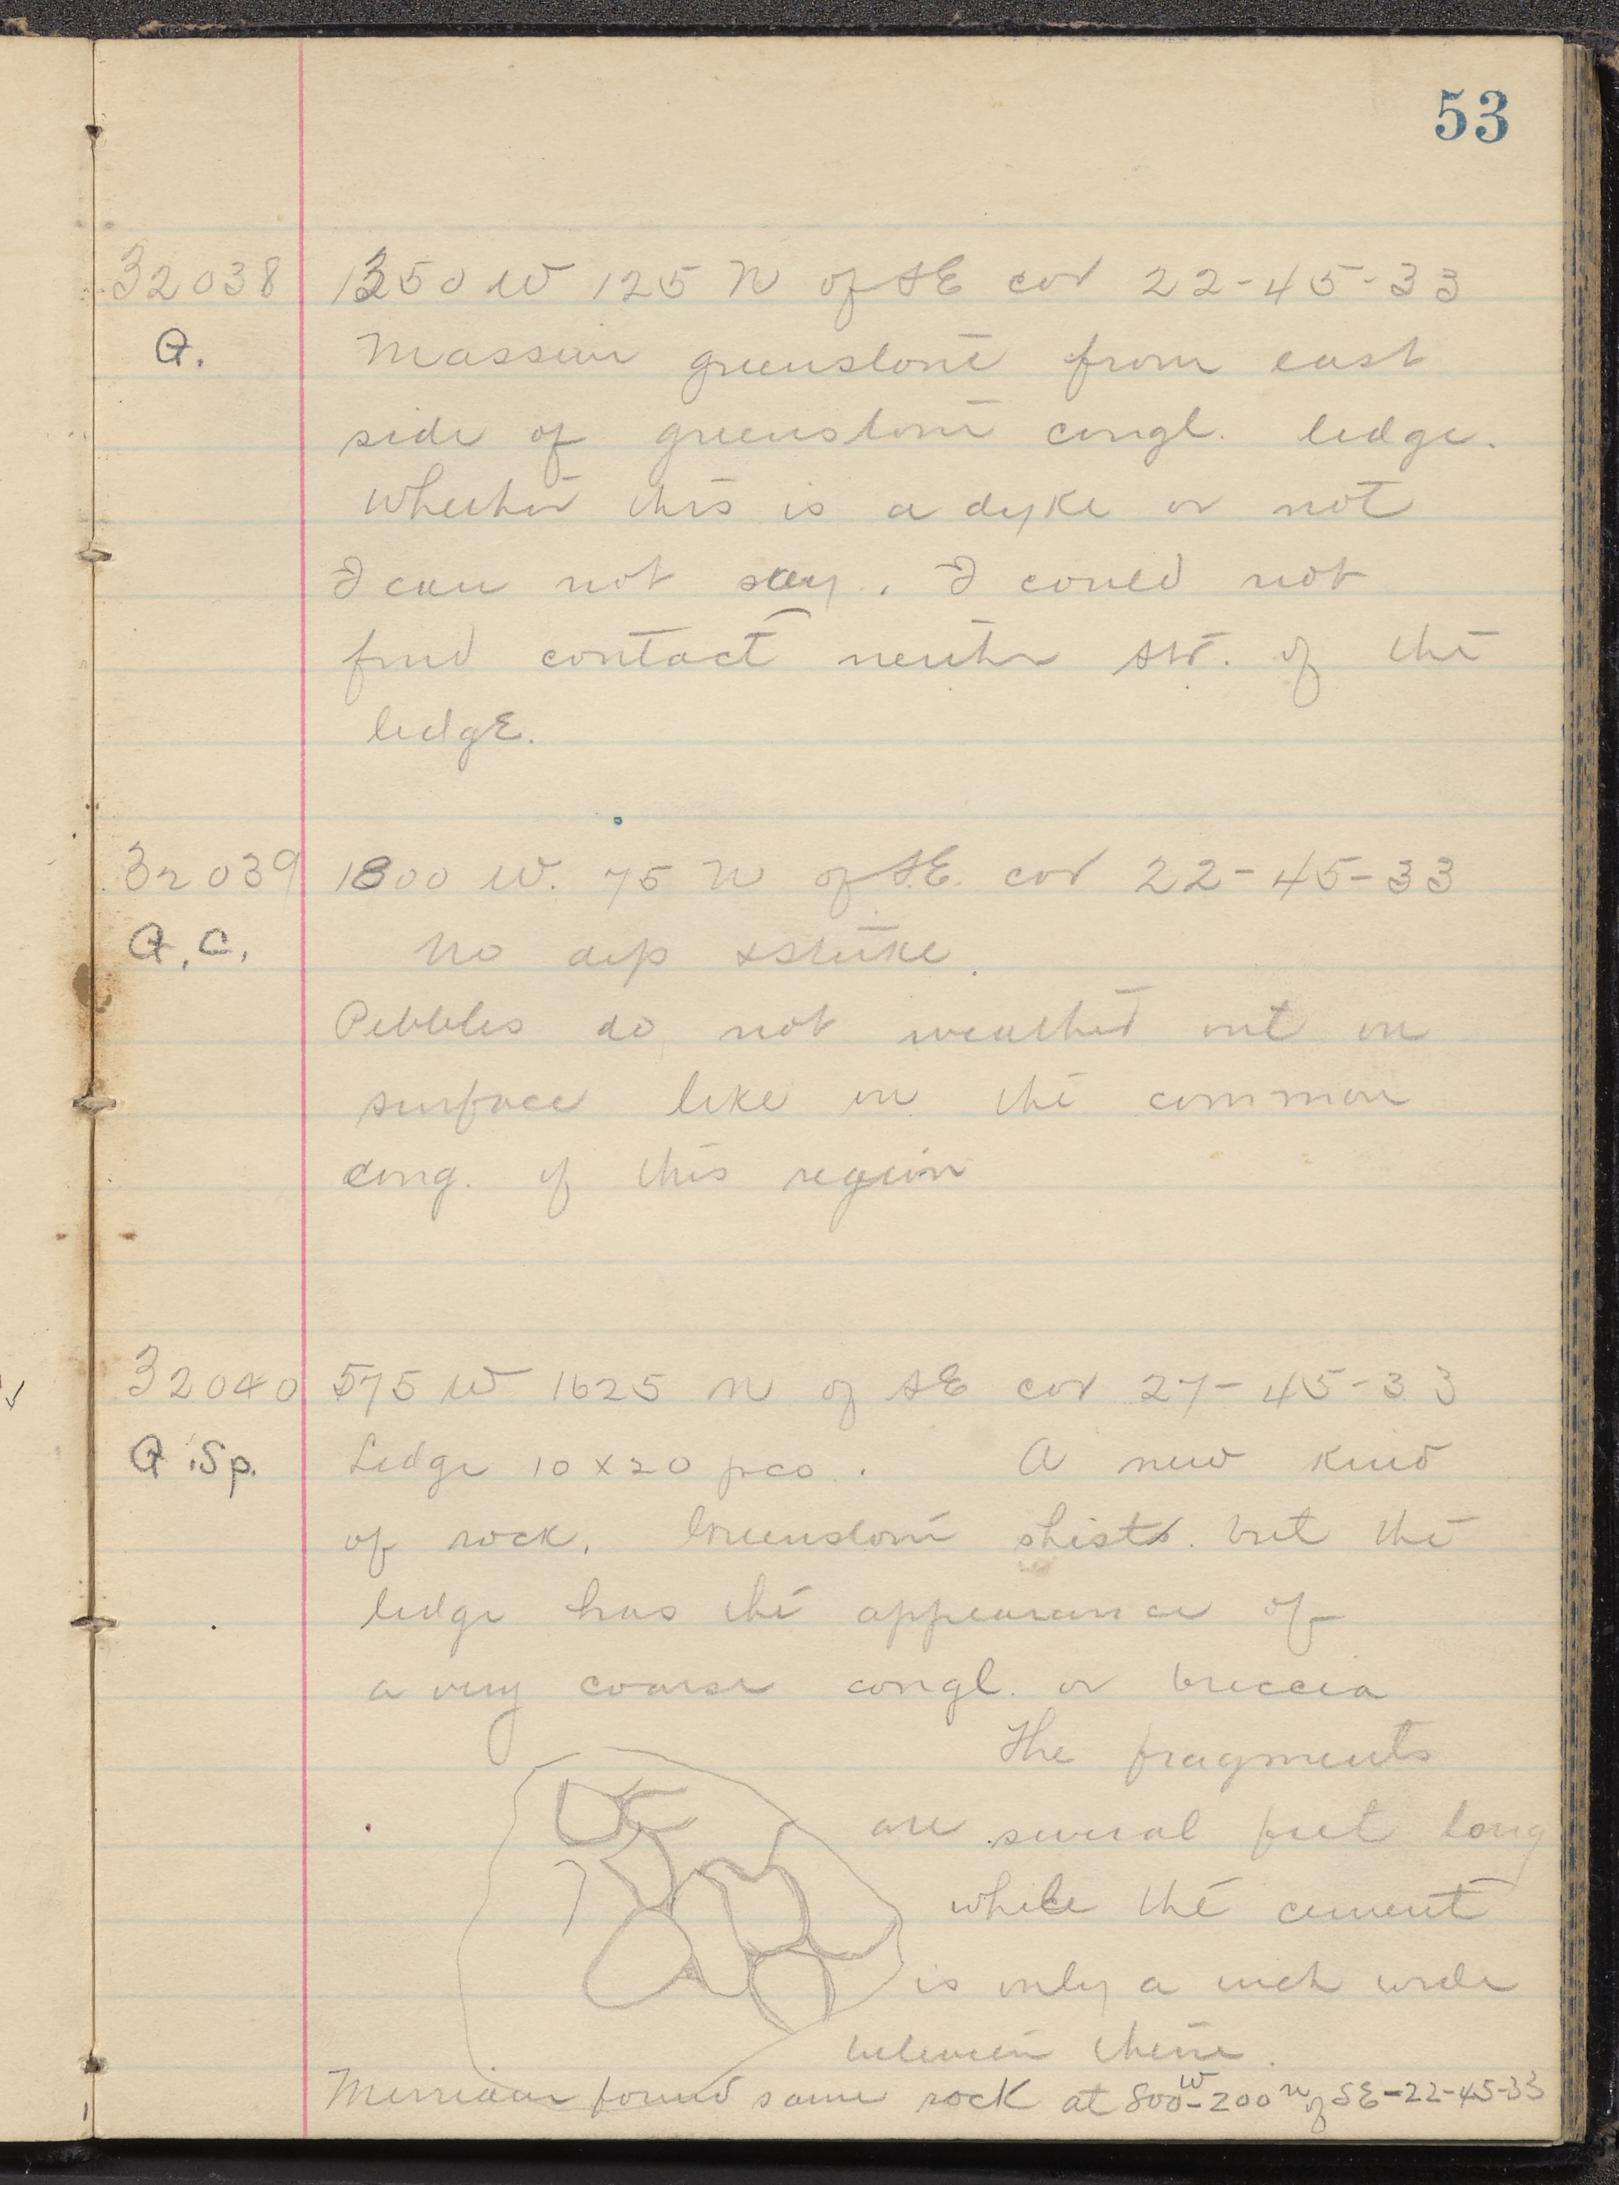 53
32038 1350 W 125 N of SE cor 22-45-33
Q. Massive greenstone from east
side of greenstone congl. ledge.
Whether this is a dyke or not
I can not say. I could not
find contact neither SW. of the
ledge.
32039 1800 W. 75 N of S.E. cor 22-45-33
Q. C. No dip & strike.
Pebbles do not weather out on
surface like in the common
cong. of this region
32040 575 W 1625 N of SE cor 27-45-33
Q. Sp. Ledge 10 x 20 pcs. A new kind
of rock. Greenstone shists. but the
ledge has the appearance of
a very coarse congl. or breccia
The fragments
are several feet long
while the cement
is only a inch wide
between them.
Merriam found same rock at 800 W - 200 N of SE - 22-45-33